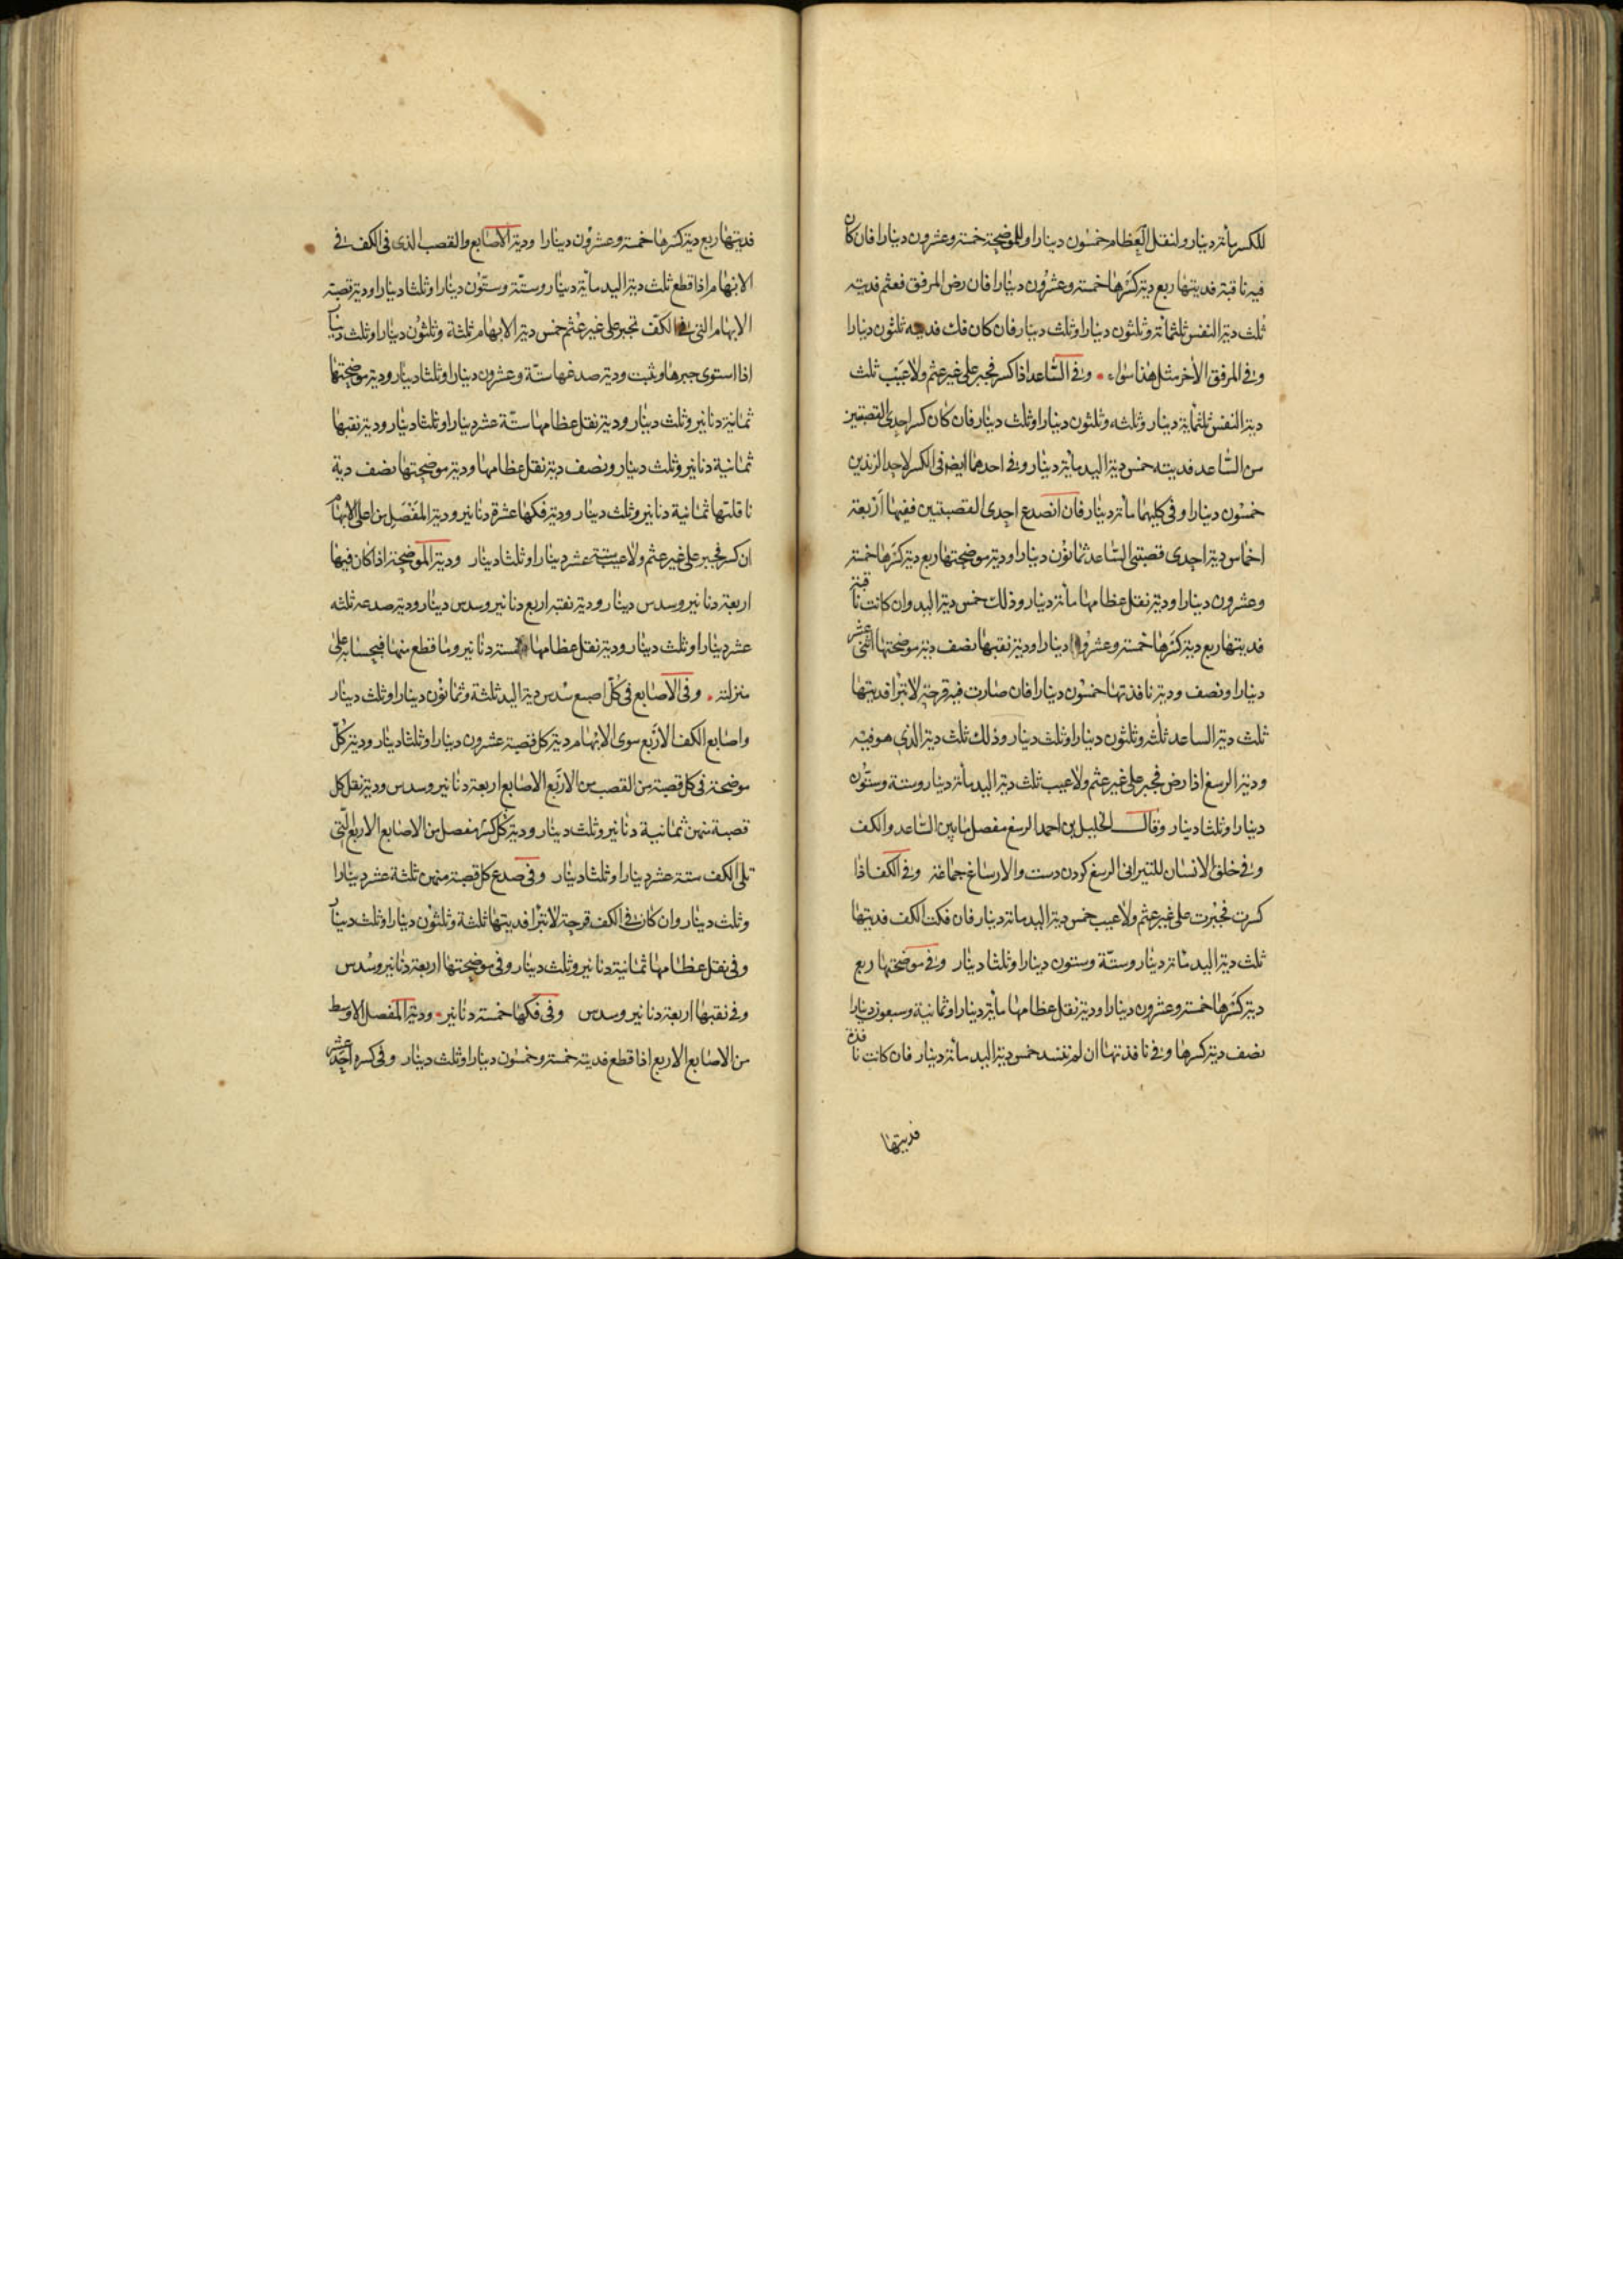 للكسر مائة دينار ولنقل العظام خمسون دينارا وللموضحة خمسة وعشرون دينارا فان كان
فيه ناقبة فديتها ربع دية كسرها خمسة وعشرون دينارا فان رض المرفق فعثم فديته
ثلث دية النفس ثلثمائة وثلثون دينارا وثلث دينار فان كان فك فديته ثلثون دينارا
وفي المرفق الأخر مثل هذا سواء وفي الساعد اذا كسر فجبر على غير عثم ولا عيب ثلث
دية النفس ثلثمائة دينار وثلثه وثلثون دينارا وثلث دينار فان كان كسر احدى القصبتين
من الساعد فديته خمس دية اليد مائة دينار وفي احدهما ايضا في الكسر لاحد الزندين
خمسون دينارا وفي كليهما مائة دينار فان انصدع احدى القصبتين ففيها أربعة
اخماس دية احدى قصبتي الساعد ثمانون دينارا ودية موضحتها ربع دية كسرها خمسة
وعشرون دينارا ودية نقل عظامها مائة دينار وذلك خمس دية اليد وان كانت ناقبة
فديتها ربع دية كسرها خمسة وعشرون دينارا ودية نقبها نصف دية موضحتها اثنى عشر
دينارا ونصف ودية نافذتها خمسون دينارا فان صارت فيه قرحة لا تبرا فديتها
ثلث دية الساعد ثلثة وثلثون دينارا وثلث دينار وذلك ثلث دية الذي هو فيه
ودية الرسغ اذا رض فجبر على غير عثم ولا عيب ثلث دية اليد مائة دينار وستة وستون
دينارا وثلثا دينار وقال الخليل بن احمد الرسغ مفصل ما بين الساعد والكف
وفي خلق الانسان للتيراني الرسغ كردن دست والارساغ جماعة وفي الكف اذا
كسرت فجبرت على غير عثم ولا عيب خمس دية اليد مائة دينار فان فكت الكف فديتها
ثلث دية اليد مائة دينار وستة وستون دينارا وثلثا دينار وفي موضحتها ربع
دية كسرها خمسة وعشرون دينارا ودية نقل عظامها مائة دينارا وثمانية وسبعون دينارا
نصف دية كسرها وفي نافذتها ان لم تنسد خمس دية اليد مائة دينار فان كانت نافذة
فديتها
فديتها ربع دية كسرها خمسة وعشرون دينارا ودية الاصابع والقصب الذي في الكف في
الابهام اذا قطع ثلث دية اليد مائة دينار وستة وستون دينارا وثلثا دينارا ودية قصبة
الابهام التي في الكف تجبر على غير عثم خمس دية الابهام ثلثة وثلثون دينارا وثلث دينار
اذا استوى جبرها وثبت ودية صدغها ستة وعشرون دينارا وثلثا دينار ودية موضحتها
ثمانية دنانير وثلث دينار ودية نقل عظامها ستة عشر دينارا وثلثا دينار ودية نقبها
ثمانية دنانير وثلث دينار ونصف دية نقل عظامها ودية موضحتها نصف دية
ناقلتها ثمانية دنانير وثلث دينار ودية فكها عشرة دنانير ودية المفصل من اعلى الابهام
ان كسر فجبر على غير عثم ولا عيب ستة عشر دينارا وثلثا دينار ودية الموضحة اذا كان فيها
اربعة دنانير وسدس دينار ودية نقبه اربع دنانير وسدس دينار ودية صدعه ثلثه
عشر دينارا وثلث دينار ودية نقل عظامها خمسة دنانير وما قطع منها فبحسابه على
منزلته وفي الاصابع في كل اصبع سدس دية اليد ثلثة وثمانون دينارا وثلث دينار
واصابع الكف الاربع سوى الابهام دية كل قصبة عشرون دينارا وثلثا دينار ودية كل
موضحة في كل قصبة من القصب من الاربع الاصابع اربعة دنانير وسدس ودية نقل كل
قصبة منهن ثمانية دنانير وثلث دينار ودية كل كسر مفصل من الاصابع الاربع التي
تلي الكف ستة عشر دينارا وثلثا دينار وفي صدع كل قصبة منهن ثلثة عشر دينارا
وثلث دينار وان كان في الكف قرحة لا تبرا فديتها ثلثة وثلثون دينارا وثلث دينار
وفي نقل عظامها ثمانية دنانير وثلث دينار وفي موضحتها اربعة دنانير وسدس
وفي نقبها اربعة دنانير وسدس وفي فكها خمسة دنانير ودية المفصل الاوسط
من الاصابع الاربع اذا قطع فديته خمسة وخمسون دينارا وثلث دينار وفي كسره احد عشر